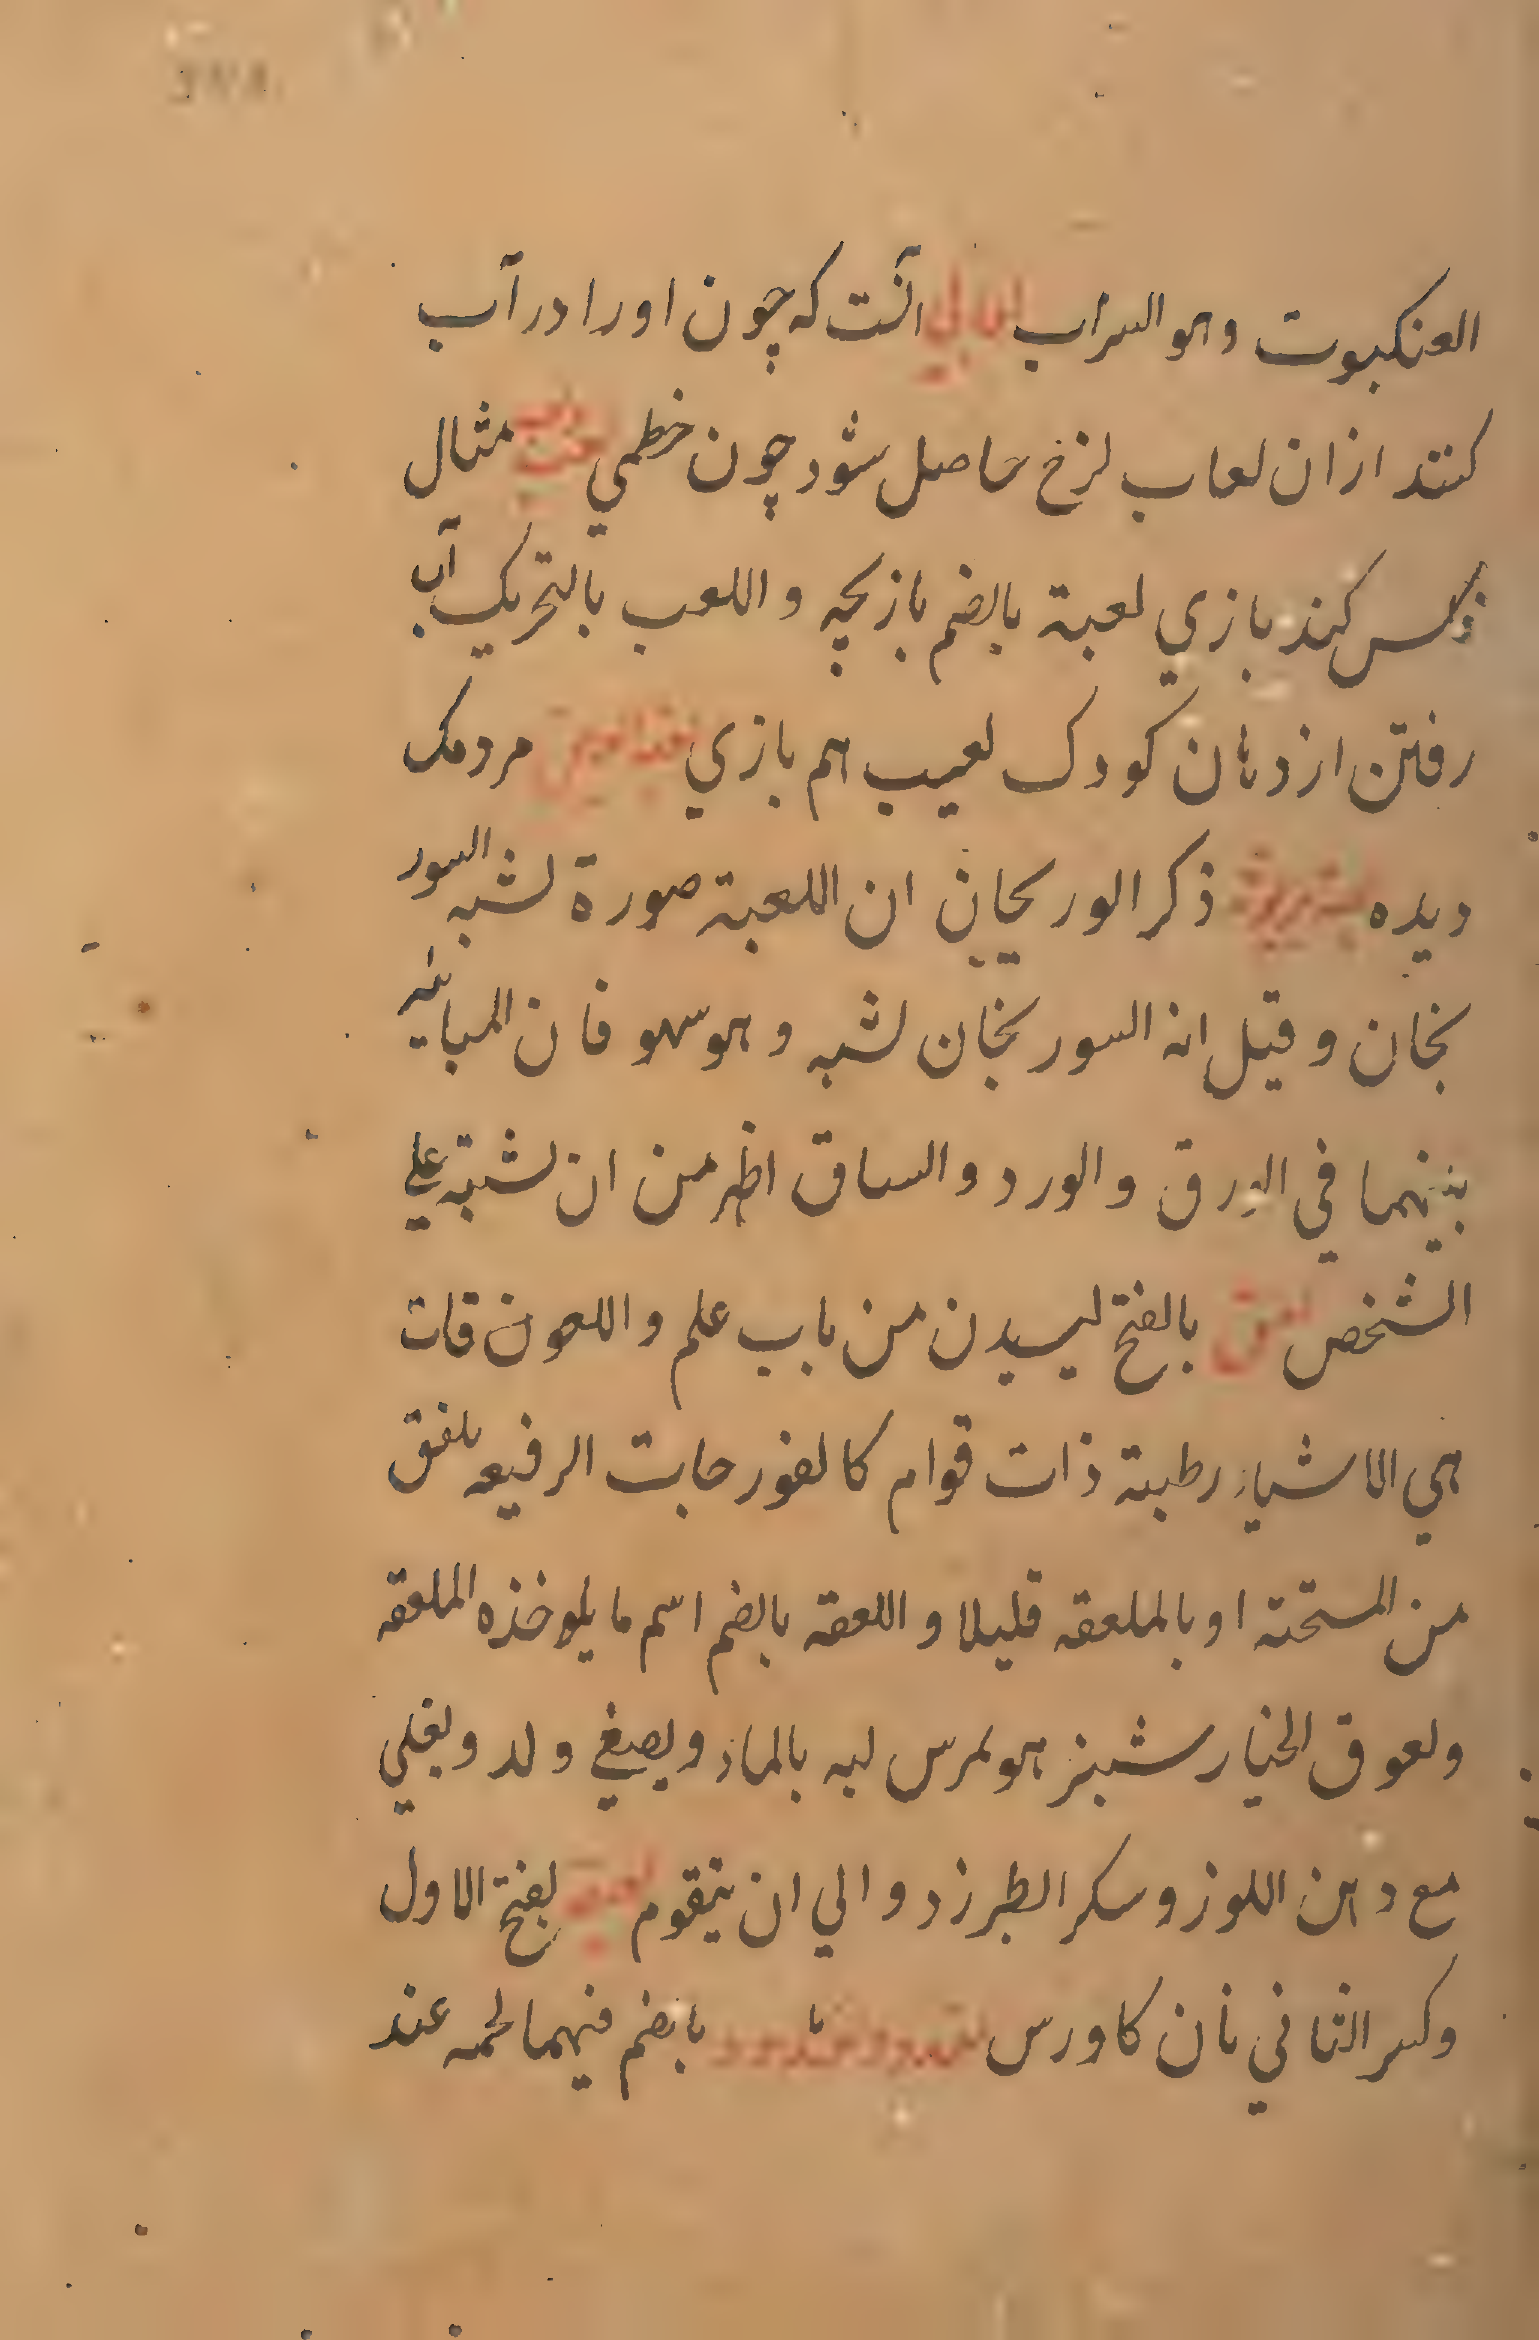 العنكبوت وهو السراب لعابي انست كه چون اورا در آب
كنند ازان لعاب لزخ حاصل شود چون خطمي مثال
كند بازي لعبة بالضم بازيچه و اللعب بالتحريك آب
رفتن از دهان كودك لعيب هم بازي مردمك
ديده ذكر الوريحان ان اللعبة صورة لشبه السور
نجان وقيل انه السورنجان لشبه و هو سهو فان المباينه
بينهما في الورق والورد والساق اظهر من ان لشبه علي
الشخص لعق بالفتح ليسيدن من باب علم و اللعون قات
هي الاشياء رطبة ذات قوام كالفورحابت الرفيعه بلفق
من المستحته او بالملعقه قليلا و اللعقه بالضم اسم ما يلوخذه الملعقه
ولعوق الخيار شبنز هو لمرس لبه بالماء ويصفي و لد ويغلي
مع دهن اللوز و سكر الطبرزد و الي ان يتقوم لفتح الاول
وكسر الثاني نان كاورس بالضم فيهما لحمه عند